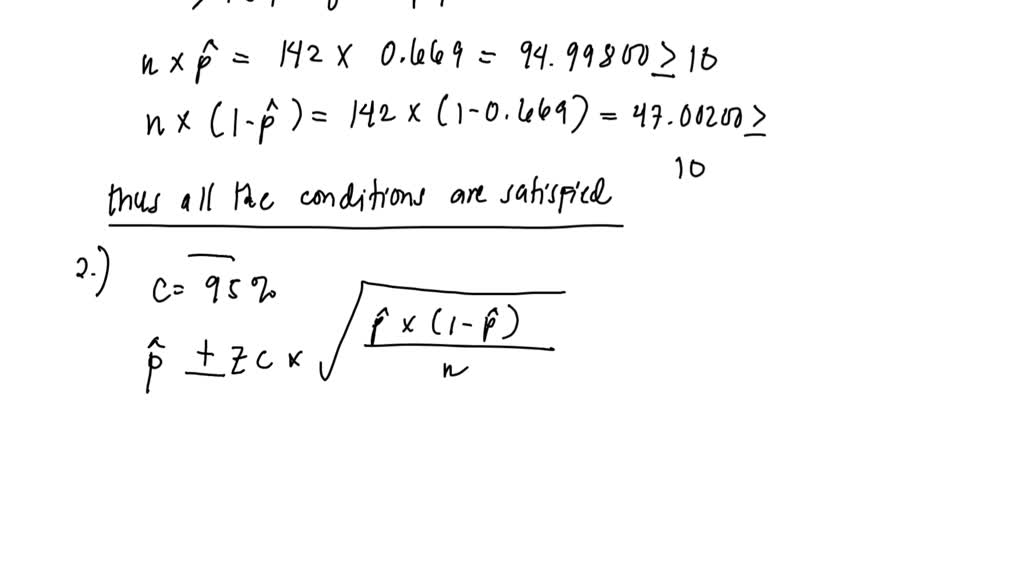 n × p̂ = 142 × 0.669 = 94.99800 ≥ 10
n × (1-p̂) = 142 × (1-0.669) = 47.00200 ≥
10
thus all the conditions are satisfied
2.)
c = 95%
p̂ ± zc × √(p̂ × (1-p̂) / n)